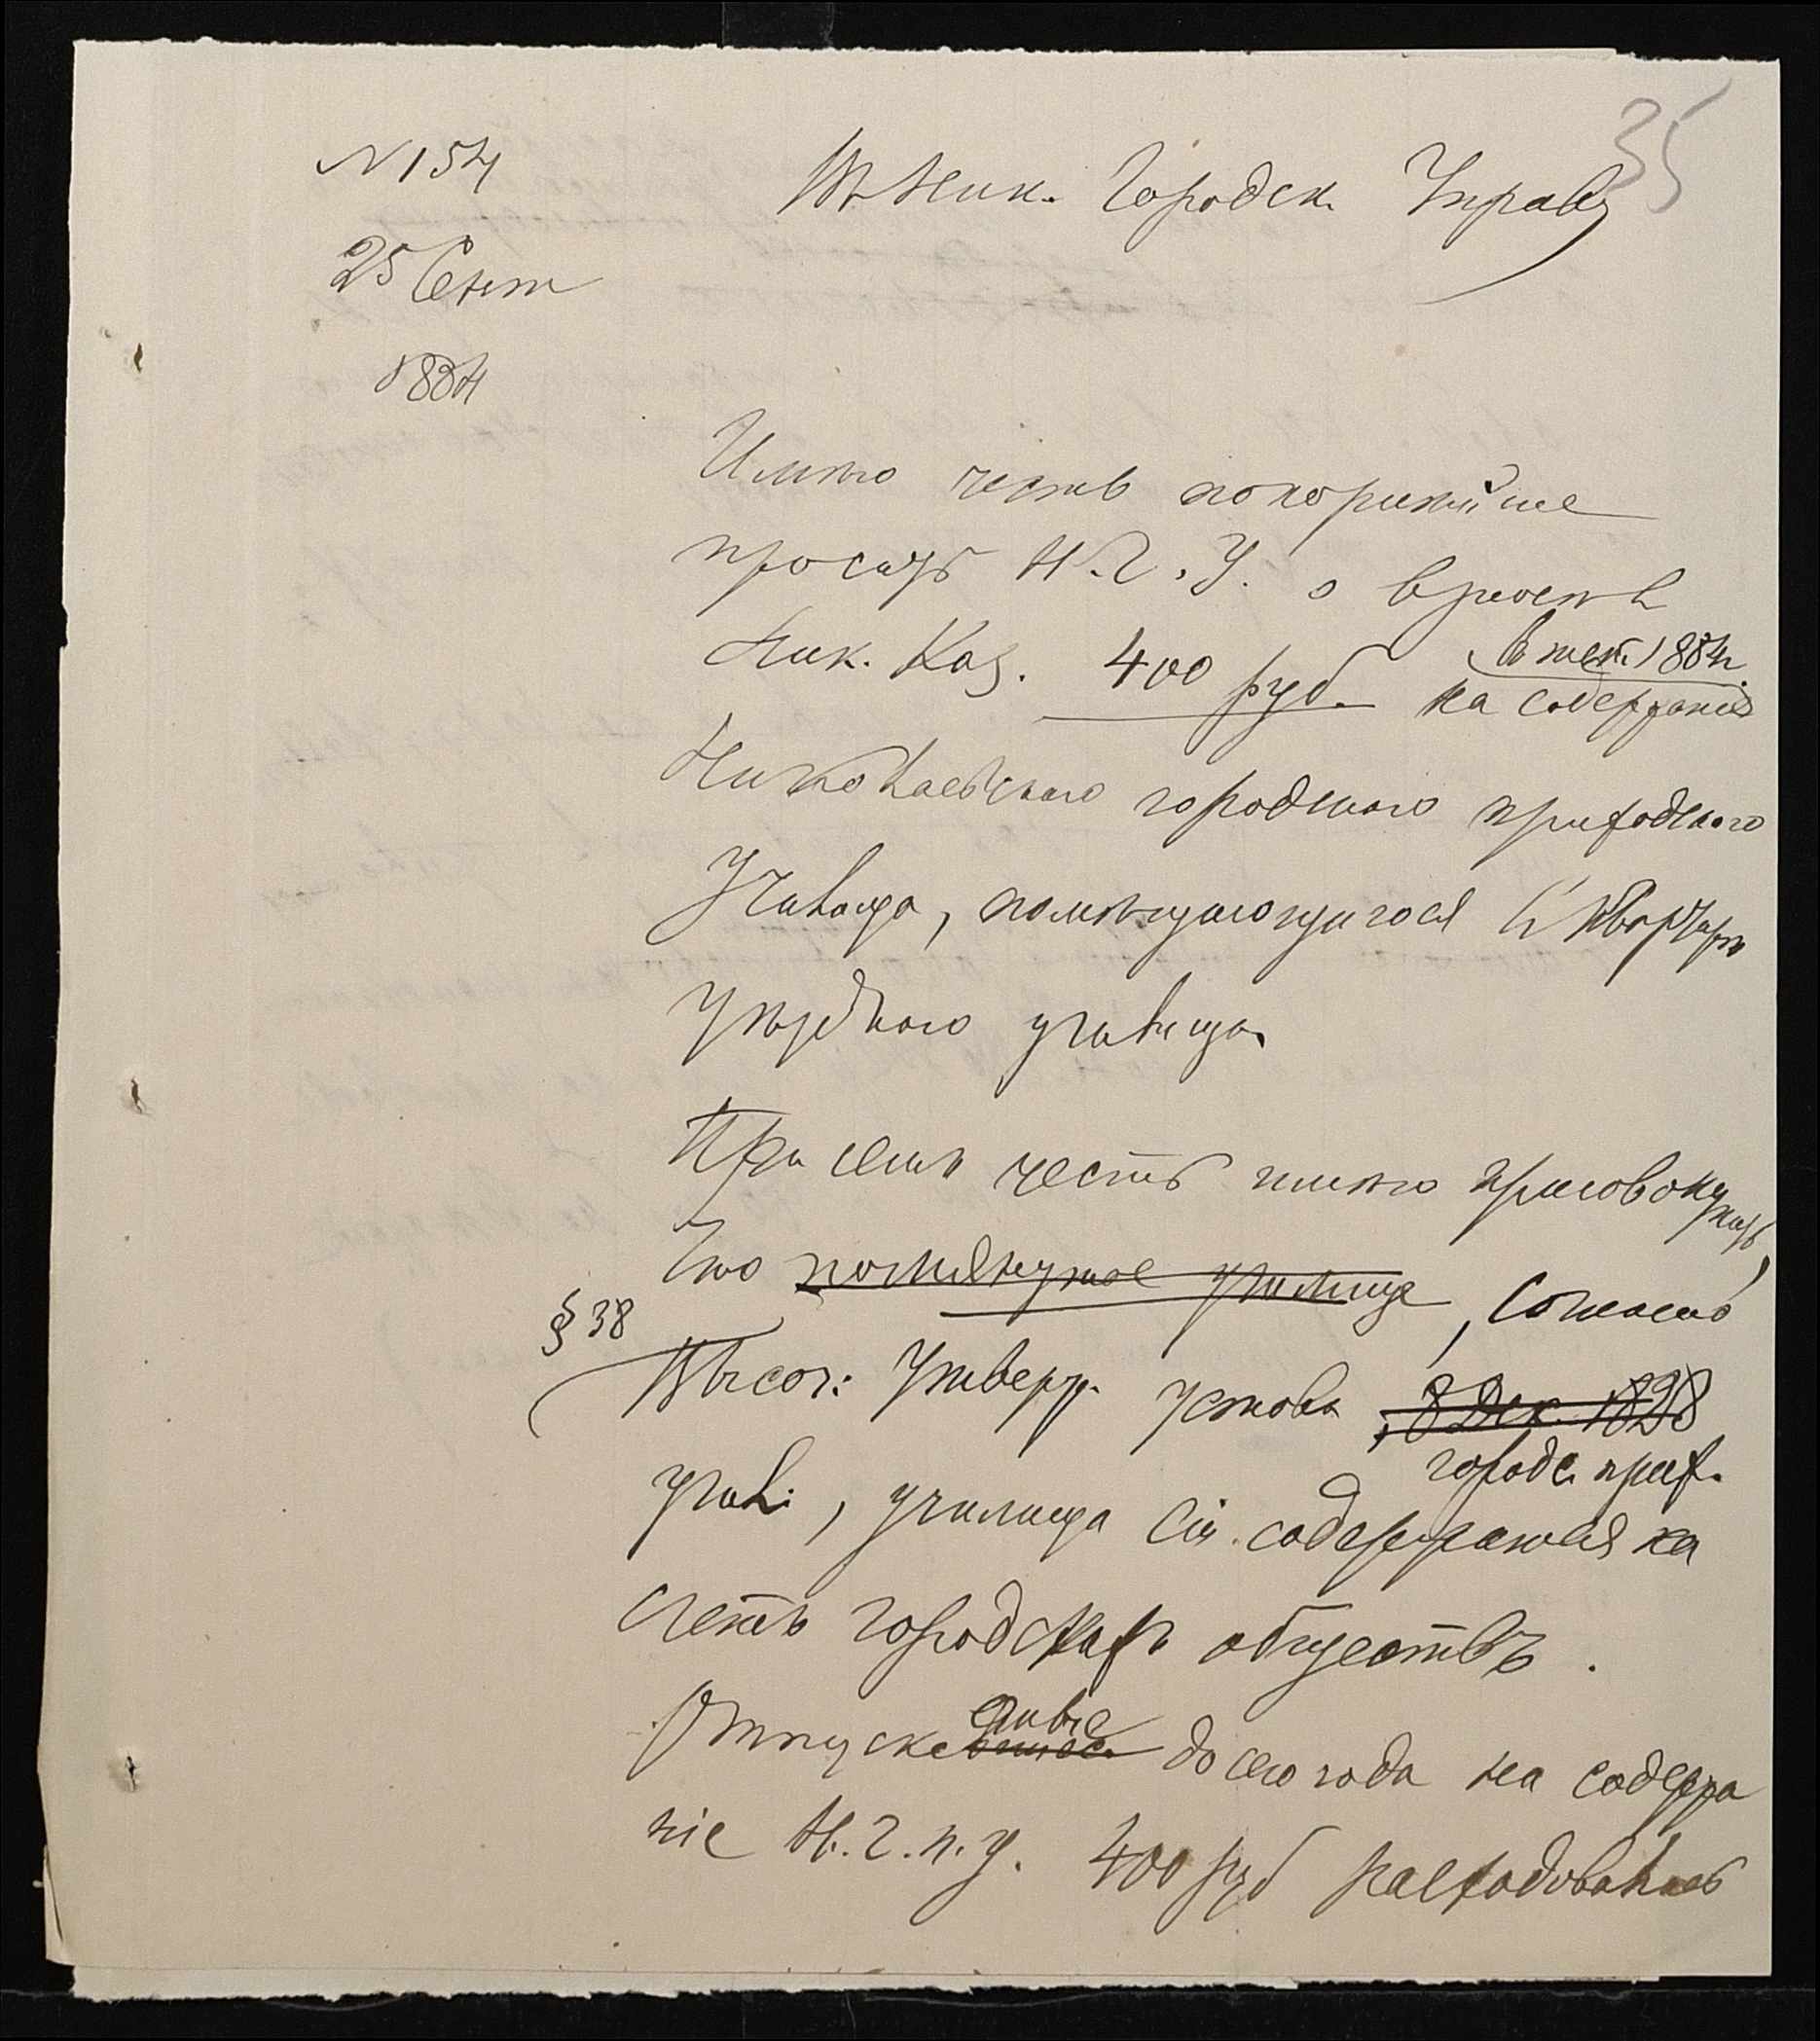 35
N 154
Въ Ник. Городск. Управу
25 Сент
1884
Имѣю честь покорнѣйше
просить Н. Г. У. о взносѣ въ
Ник. Каз. 400 руб. на содержаніе
въ тек. 1884 г.
Николаевскаго городского приходскаго
Училища, помѣщающагося въ квартирѣ
уѣзднаго училища.
При семъ честь имѣю присовокупить,
что помянутое училище, согласно
§ 38
Высоч: Утвержд. устава, 8 Дек. 1828
городс. прих.
учил:, училища сіи содержатся на
счетъ городскихъ обществъ.
Отпускавшіеся до сего года на содержа
ніе Н. г. п. у. 400 руб расходовались